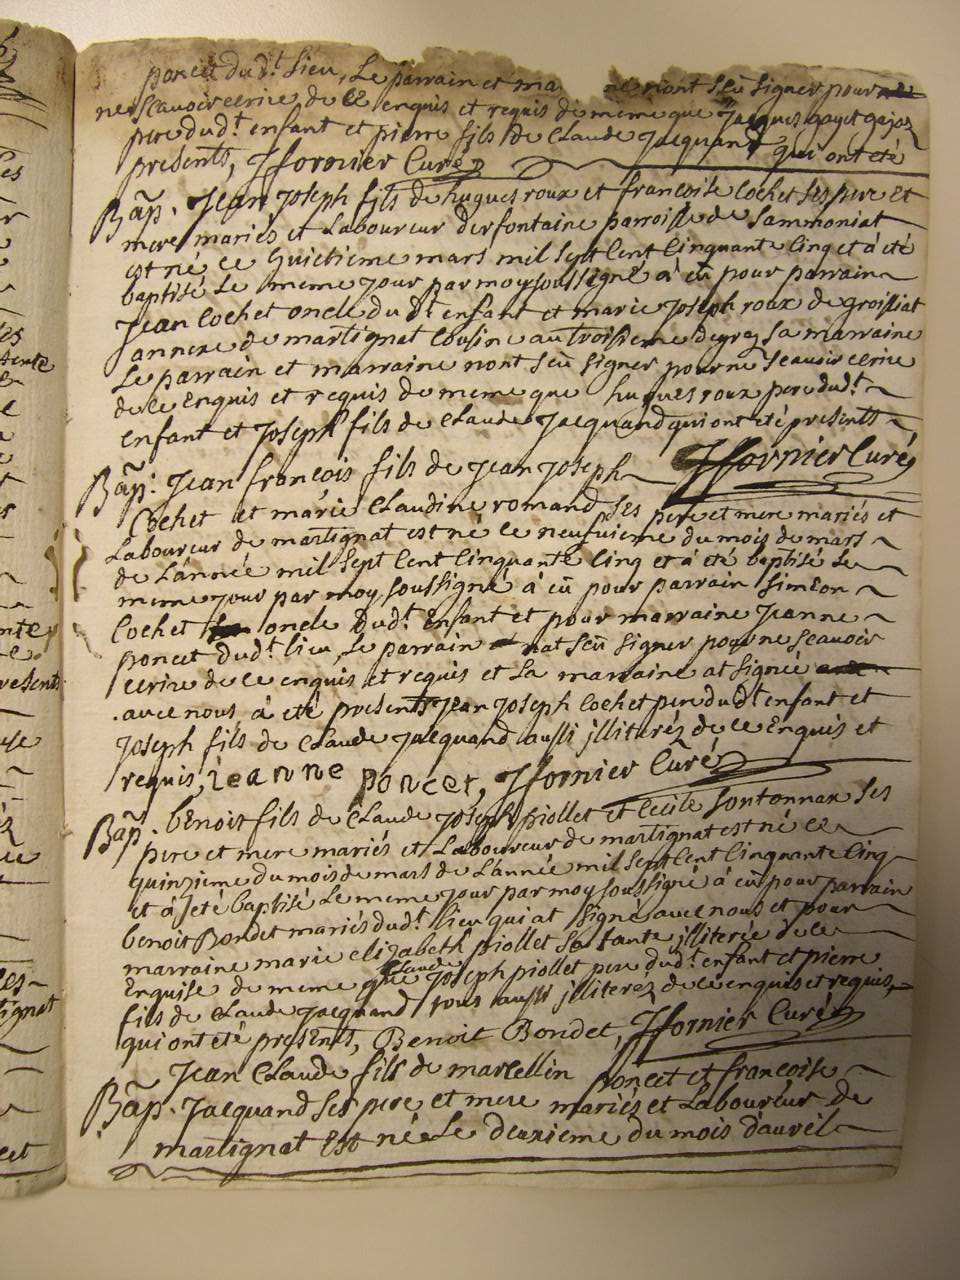 poncet dud.t lieu, Le parrain et ma ne n'ont sçû signer pour
ne sçavoir ecrire de ce enquis et requis de meme que Jacques gayet
pere dud.t enfant et pierre fils de Claude Jacquand qui ont été
presents, Jffornier Curé
Bap. Jean Joseph fils de hugues roux et francoise Cochet ses pere et
mere mariés et Laboureur derfontaine parroisse de Sammoniat
est né ce huictieme mars mil sept cent cinquante cinq et à été
baptisé Le meme jour par moy soussigné à eû pour parrain
Jean Cochet oncle dud.t enfant et marie Joseph roux de groissiat
annexe de martignat Cousine au troisieme degrez sa marraine
Le parrain et marraine n'ont sçû signer pour ne sçavoir ecrire
de ce enquis et requis de meme que hugues roux pere dud.t
enfant et Joseph fils de Claude Jacquand qui ont été presents
Jffornier Curé
Bap. Jean françois fils de Jean Joseph
Cochet et marie Claudine romand ses pere et mere mariés et
Laboureur de martignat est né ce neufvieme du mois de mars
de L'année mil sept cent cinquante cinq et à été baptisé Le
meme jour par moy soussigné à eû pour parrain Simeon
Cochet oncle dud.t enfant et pour marraine Jeanne
poncet dud.t lieu, Le parrain n'at sçû signer pour ne sçavoir
ecrire de ce enquis et requis et La marraine at signée
avec nous à été présents Jean Joseph Cochet pere dud.t enfant et
Joseph fils de Claude Jacquand aussi jlliterés de ce enquis et
requis, jeanne poncet, Jffornier Curé
Bap. benoit fils de Claude Joseph piollet et Cecile sontonnax ses
pere et mere mariés et Laboureur de martignat est né ce
quinzieme du mois de mars de L'année mil sept cent cinquante cinq
et à été baptisé Le meme jour par moy soussigné à eû pour parrain
benoit Bondet mariés dud.t lieu qui at signé avec nous et pour
marraine marie elizabeth piollet sa tante jlliterée de ce
Enquise de meme que Claude Joseph piollet pere dud.t enfant et pierre
fils de Claude Jacquand tous aussi jlliterez de ce enquis et requis,
qui ont été presents, Benoit Bondet, Jffornier Curé
Jean Claude fils de marcellin poncet et francoise
Bap. Jacquand ses pere et mere mariéz et Laboureur de
martignat est né Le deuxieme du mois d'avril